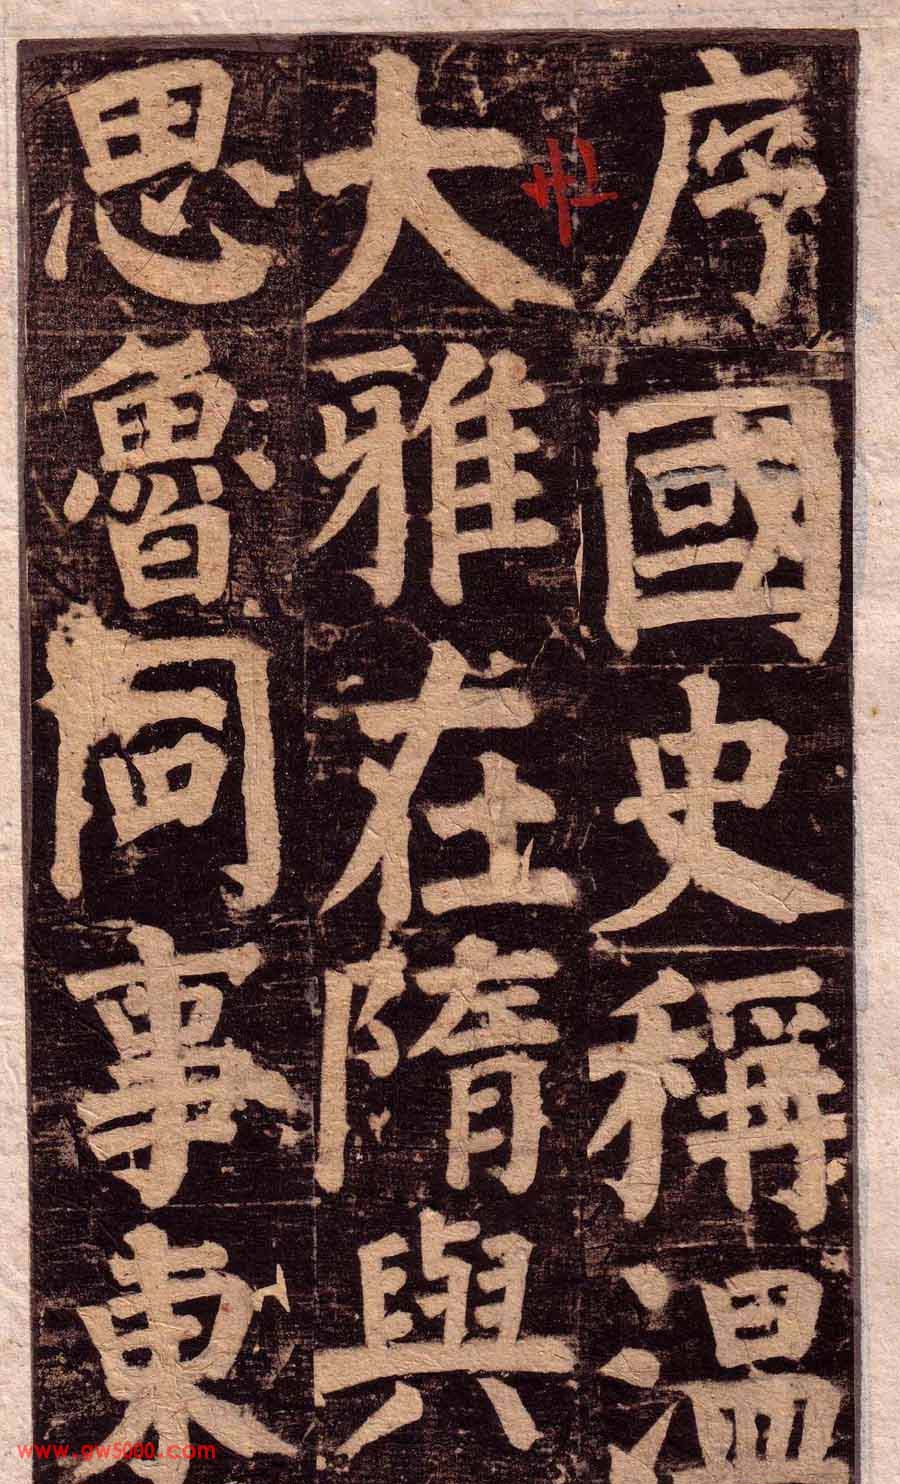 序國史稱溫
大雅在隋與
思魯同事東
www.gw5000.com